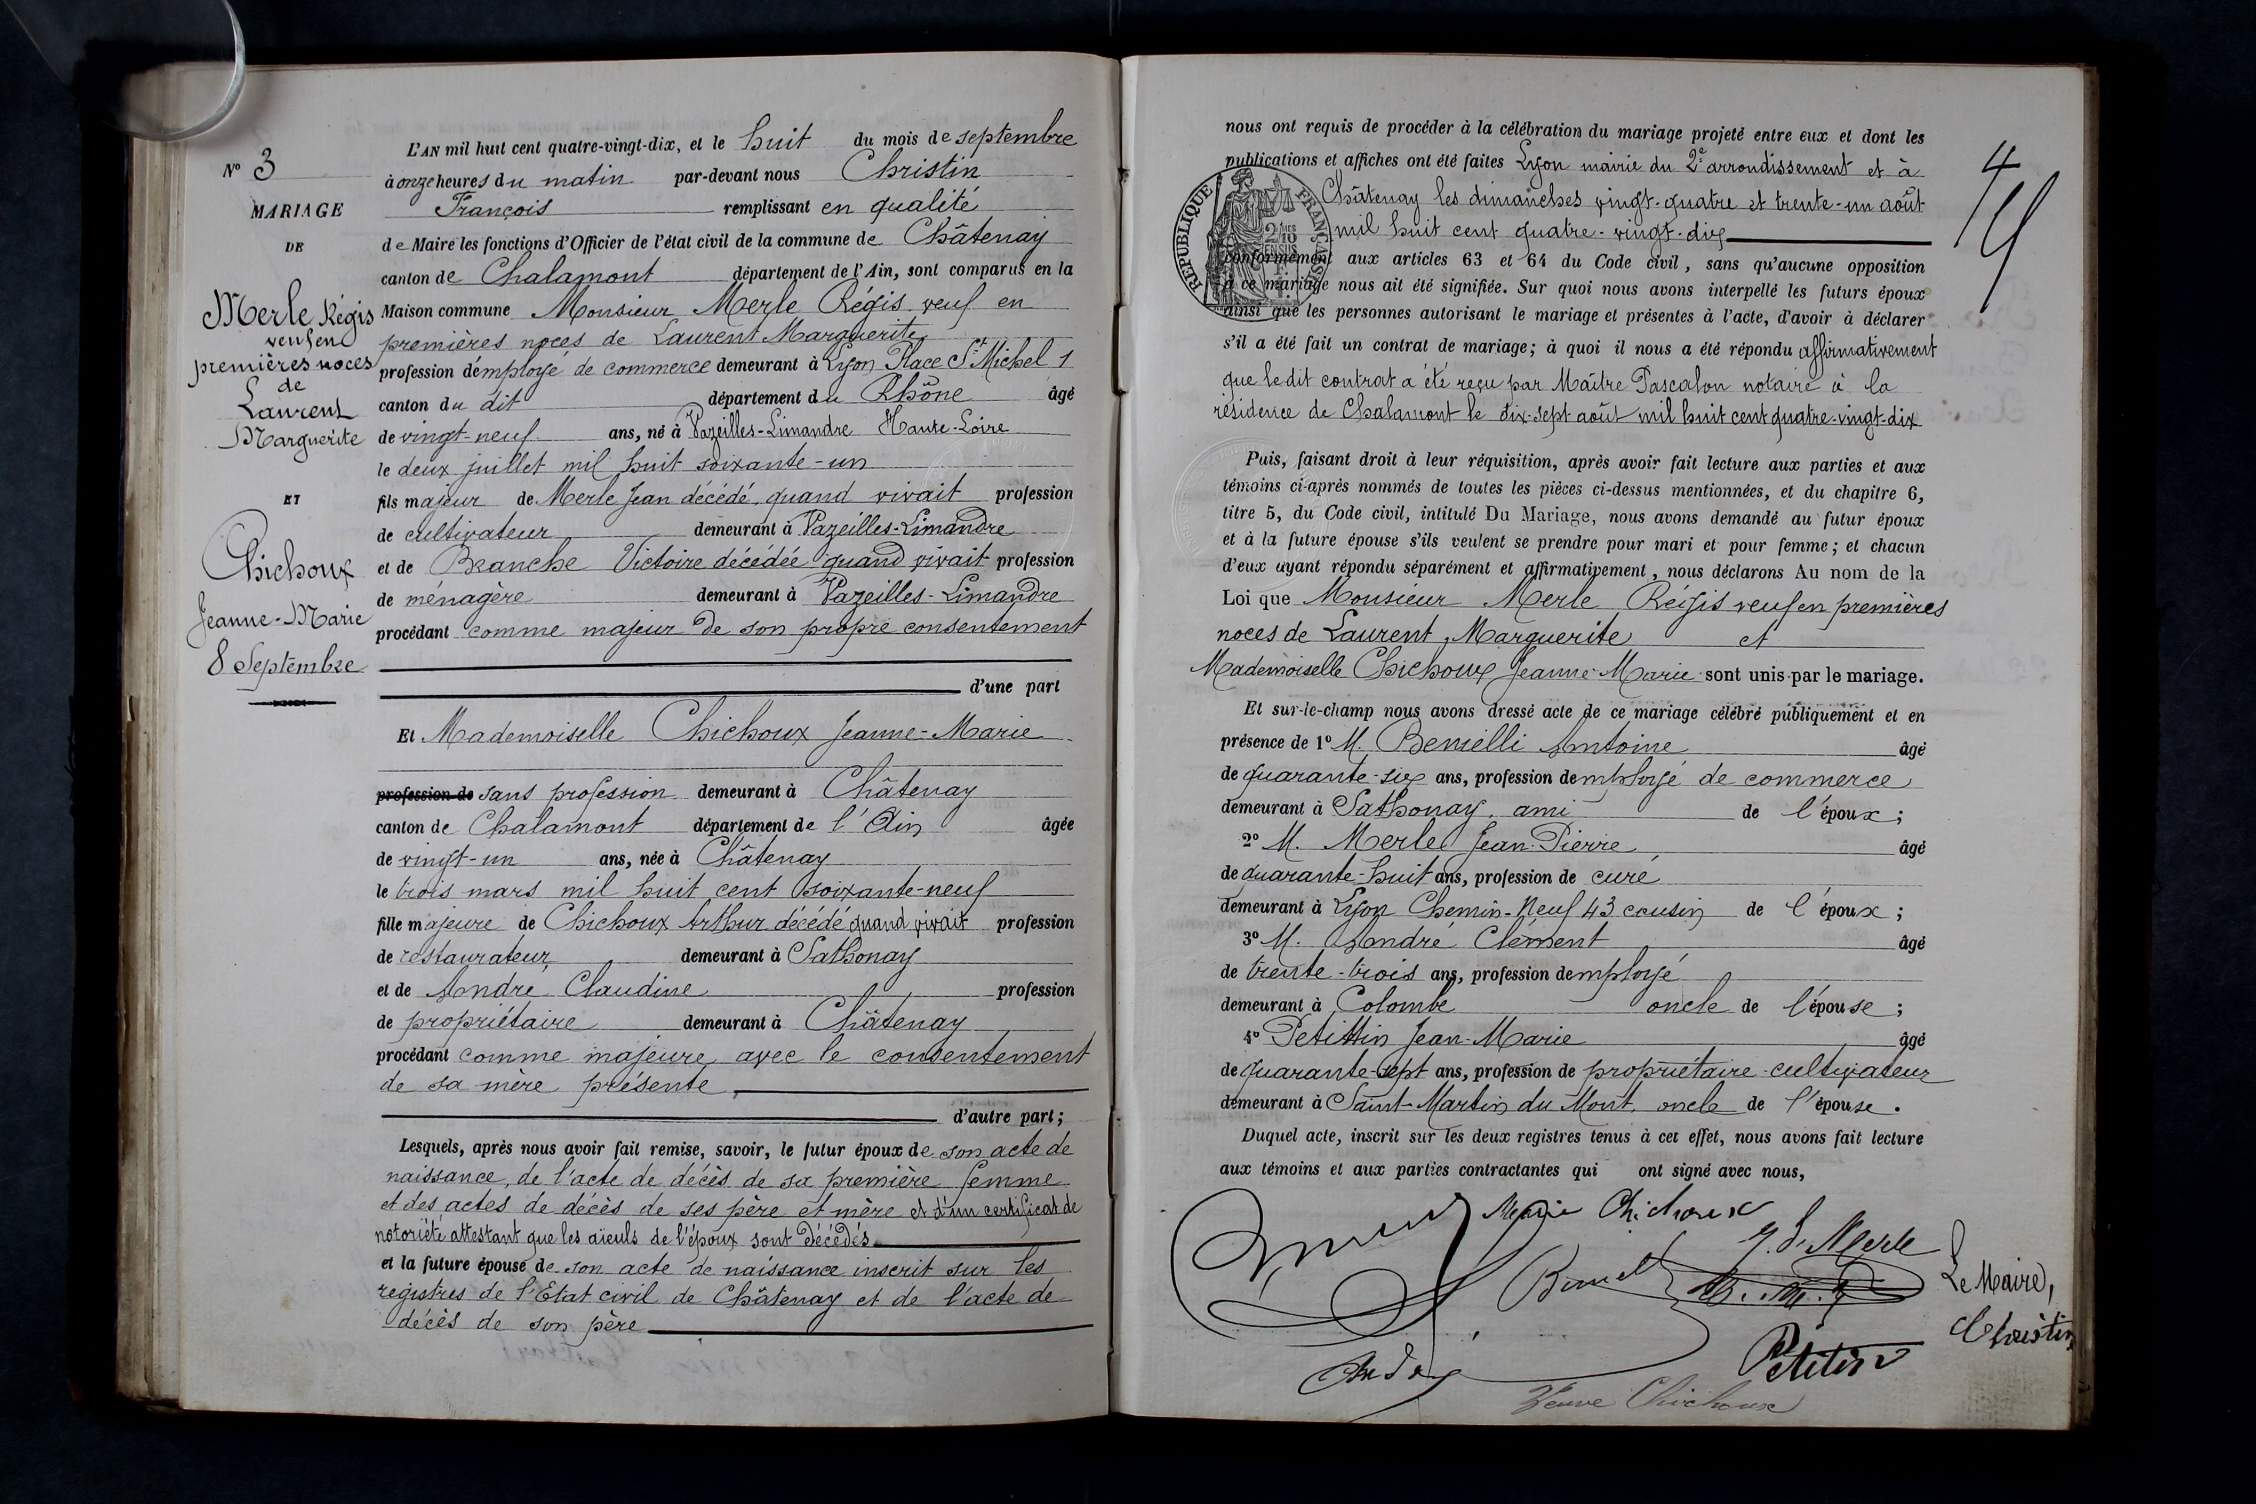 N° 3
MARIAGE
DE
Merle Régis
veuf en
premières noces
de
Laurent
Marguerite
ET
Chichoux
Jeanne-Marie
8 Septembre
L'AN mil huit cent quatre-vingt-dix, et le huit du mois de septembre
à onze heures du matin par-devant nous Christin
François remplissant en qualité
de Maire les fonctions d'Officier de l'état civil de la commune de Châtenay
canton de Chalamont département de l'Ain, sont comparus en la
Maison commune Monsieur Merle Régis veuf en
premières noces de Laurent Marguerite
profession d'employé de commerce demeurant à Lyon Place St Michel 1
canton du dit département du Rhône âgé
de vingt-neuf ans, né à Vazeilles-Limandre Haute-Loire
le deux juillet mil huit soixante-un
fils majeur de Merle Jean décédé, quand vivait profession
de cultivateur demeurant à Vazeilles-Limandre
et de Branche Victoire décédée quand vivait profession
de ménagère demeurant à Vazeilles-Limandre
procédant comme majeur de son propre consentement
d'une part
Et Mademoiselle Chichoux Jeanne-Marie
profession de sans profession demeurant à Châtenay
canton de Chalamont département de l'Ain âgée
de vingt-un ans, née à Châtenay
le trois mars mil huit cent soixante-neuf
fille majeure de Chichoux Arthur décédé quand vivait profession
de restaurateur demeurant à Sathonay
et de André Claudine profession
de propriétaire demeurant à Châtenay
procédant comme majeure avec le consentement
de sa mère présente
d'autre part;
Lesquels, après nous avoir fait remise, savoir, le futur époux de son acte de
naissance, de l'acte de décès de sa première femme
et des actes de décès de ses père et mère et d'un certificat de
notoriété attestant que les aïeuls de l'époux sont décédés
et la future épouse de son acte de naissance inscrit sur les
registres de l'Etat civil de Châtenay et de l'acte de
décès de son père
nous ont requis de procéder à la célébration du mariage projeté entre eux et dont les
publications et affiches ont été faites Lyon mairie du 2e arrondissement et à
Châtenay les dimanches vingt-quatre et trente-un août
mil huit cent quatre-vingt-dix
conformément aux articles 63 et 64 du Code civil, sans qu'aucune opposition
à ce mariage nous ait été signifiée. Sur quoi nous avons interpellé les futurs époux
ainsi que les personnes autorisant le mariage et présentes à l'acte, d'avoir à déclarer
s'il a été fait un contrat de mariage; à quoi il nous a été répondu affirmativement
que le dit contrat a été reçu par Maître Pascalon notaire à la
résidence de Chalamont le dix-sept août mil huit cent quatre-vingt-dix
Puis, faisant droit à leur réquisition, après avoir fait lecture aux parties et aux
témoins ci-après nommés de toutes les pièces ci-dessus mentionnées, et du chapitre 6,
titre 5, du Code civil, intitulé Du Mariage, nous avons demandé au futur époux
et à la future épouse s'ils veulent se prendre pour mari et pour femme; et chacun
d'eux ayant répondu séparément et affirmativement, nous déclarons Au nom de la
Loi que Monsieur Merle Régis veuf en premières
noces de Laurent Marguerite et
Mademoiselle Chichoux Jeanne-Marie sont unis par le mariage.
Et sur-le-champ nous avons dressé acte de ce mariage célébré publiquement et en
présence de 1° M. Benielli Antoine âgé
de quarante-six ans, profession d'employé de commerce
demeurant à Sathonay, ami de l'époux;
2° M. Merle Jean-Pierre âgé
de quarante-huit ans, profession de curé
demeurant à Lyon Chemin-Neuf 43 cousin de l'époux;
3° M. André Clément âgé
de trente-trois ans, profession d'employé
demeurant à Colombe oncle de l'épouse;
4° Petittin Jean-Marie âgé
de quarante-sept ans, profession de propriétaire-cultivateur
demeurant à Saint-Martin du Mont, oncle de l'épouse.
Duquel acte, inscrit sur les deux registres tenus à cet effet, nous avons fait lecture
aux témoins et aux parties contractantes qui ont signé avec nous,
Marie Chichoux
J. P. Merle
Le Maire,
Christin
André
Petitin
Veuve Chichoux
REPUBLIQUE FRANÇAISE